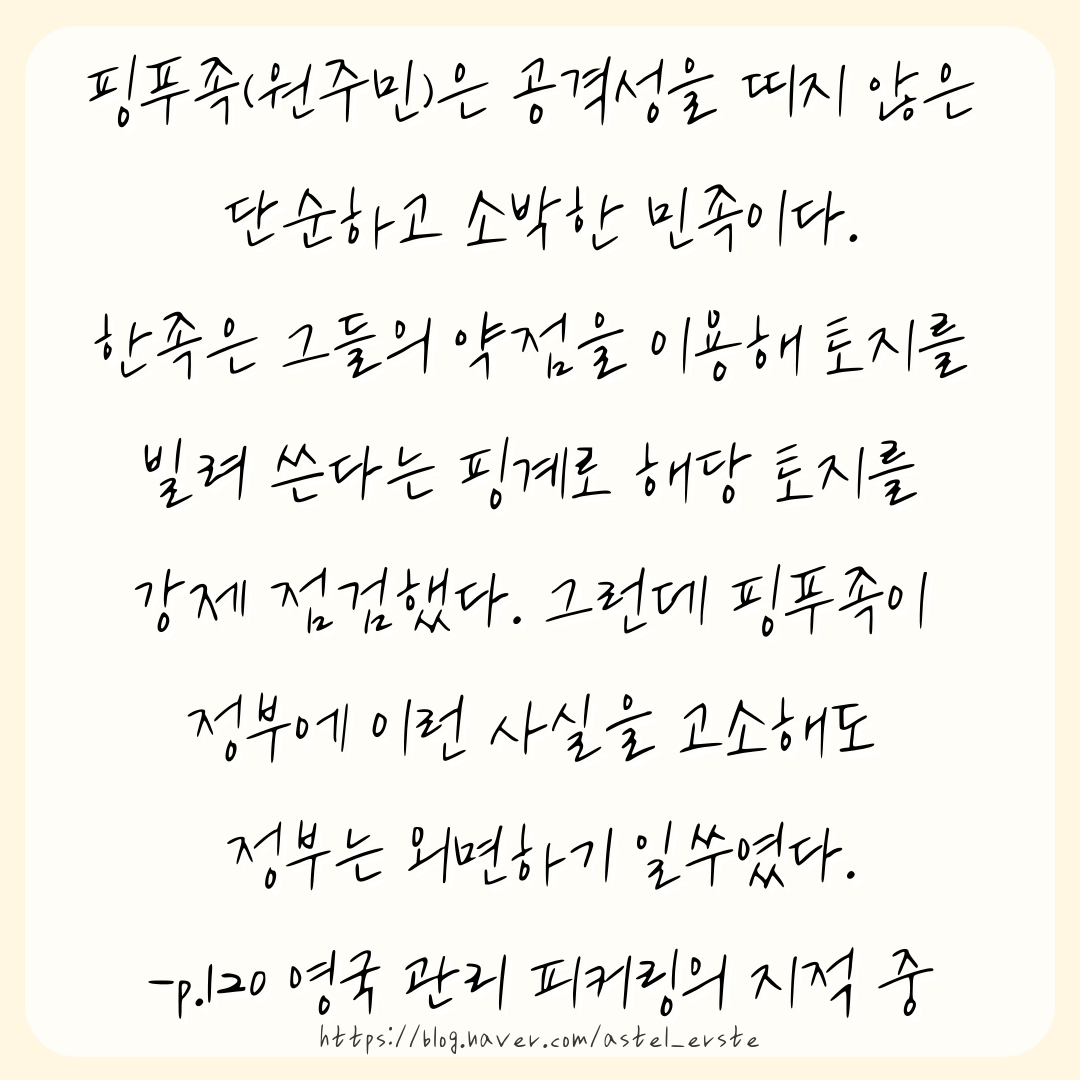 핑푸족(원주민)은 공격성을 띠지 않은
단순하고 소박한 민족이다.
한족은 그들의 약점을 이용해 토지를
빌려 쓴다는 핑계로 해당 토지를
강제 점검했다. 그런데 핑푸족이
정부에 이런 사실을 고소해도
정부는 외면하기 일쑤였다.
-p.120 영국 관리 피커링의 지적 중
https://blog.naver.com/astel_erste